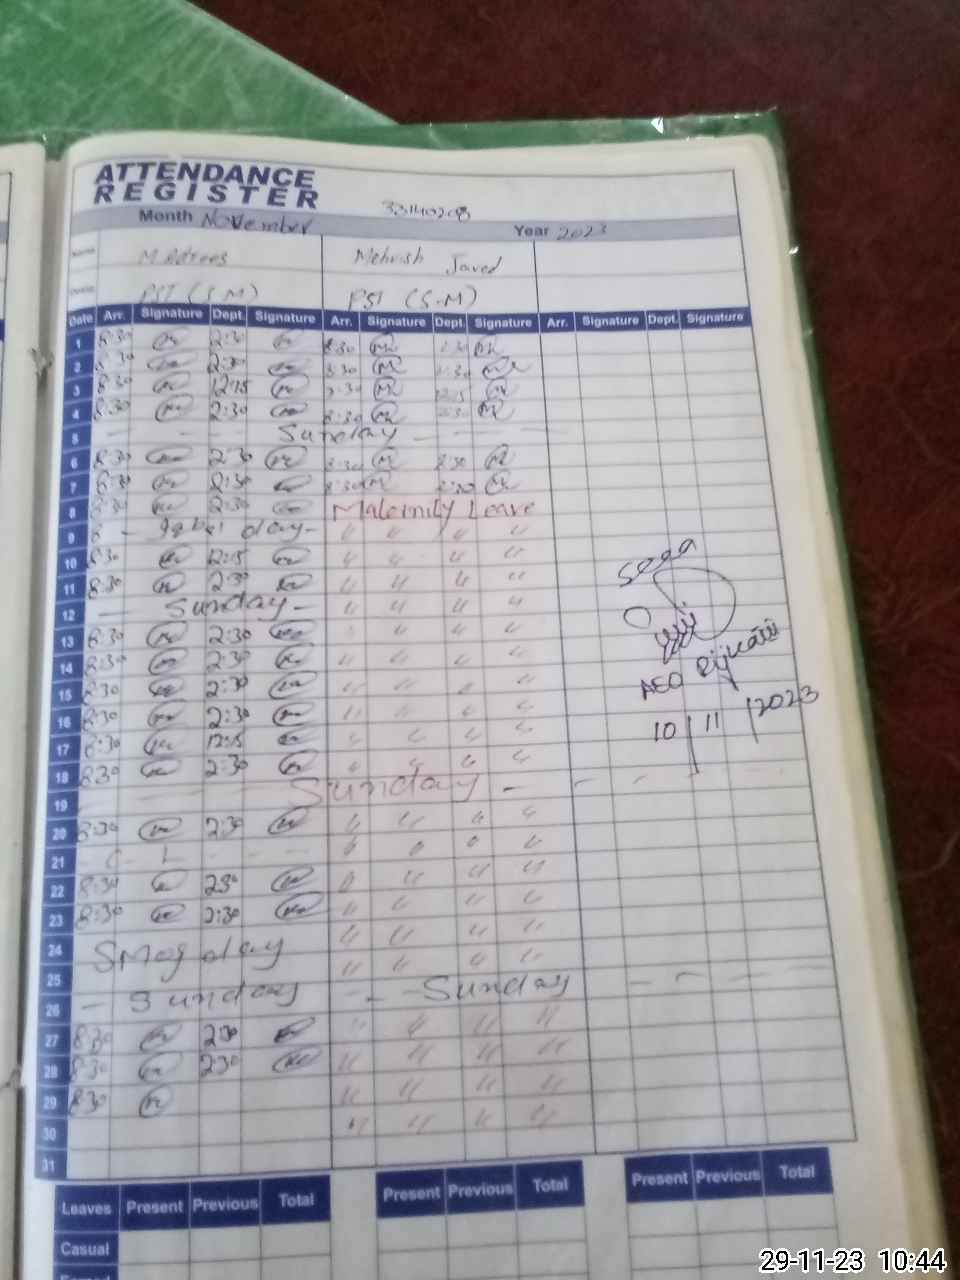 ATTENDANCE
REGISTER
33140208
Month November Year 2023
M. Adrees Mehvish Javed
PST (S.M) PST (S-M)
Date Arr. Signature Dept. Signature Arr. Signature Dept. Signature Arr. Signature Dept. Signature
1 8:30 2:30 8:30 2:30
2 8:30 2:30 8:30 2:30
3 8:30 12:15 8:30 12:15
4 8:30 2:30 8:30 2:30
5 — - - Sunday - - -
6 8:30 2:30 8:30 2:30
7 8:30 2:30 8:30 2:30
8 8:30 2:30 Maternity Leave
9 - Iqbal day - " " " "
10 8:30 12:15 " " " "
11 8:30 2:30 " " " "
12 — Sunday - " " " "
13 8:30 2:30 " " "
14 8:30 2:30 " " " "
15 8:30 2:30 " " " "
16 8:30 2:30 " " " "
17 8:30 12:15 " " " "
18 8:30 2:30 " " " "
19 Sunday - - - -
20 8:30 2:30 " " " "
21 - C - L - - - " " " "
22 8:30 230 " " " "
23 8:30 2:30 " " " "
24 Smog day " " " "
25 " " " "
26 - Sunday - - Sunday - - -
27 8:30 230 " " " "
28 8:30 230 " " " "
29 8:30 " " " "
30 " " " "
31
Seen
AEO
10/11/2023
Leaves Present Previous Total Present Previous Total Present Previous Total
Casual
29-11-23 10:44